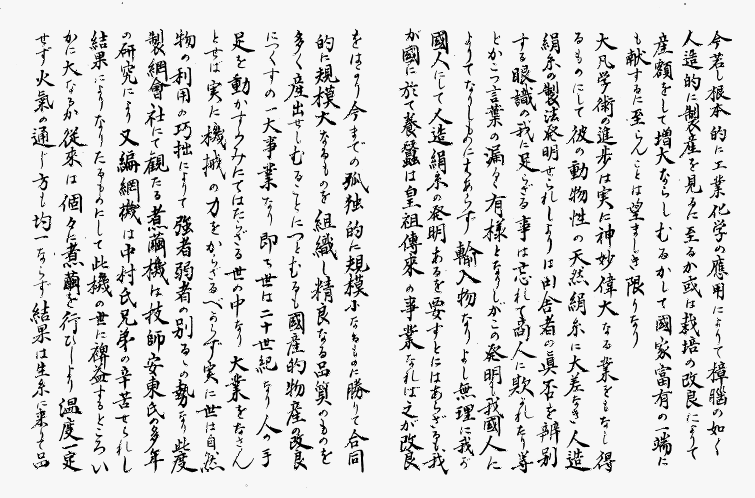 今若し根本的に工業化学の應用によりて樟腦の如く
人造的に製産を見るに至るか或は栽培の改良によりて
産額をして増大ならしむるかして國家富有の一端に
も献するに至らんことは望ましき限りなり
大凡学術の進歩は実に神妙偉大なる業をもなし得
るものにして彼の動物性の天然絹糸に大差なき人造
絹糸の製法発明せられしよりは田舎者の眞否を辨別
する眼識の我に足らざる事は忘れて商人に欺かれたり等
とかこつ言葉の漏るゝ有様となりしがこの発明や我國人に
よりてなりしものにはあらず輸入物なりよし無理に我が
國人にして人造絹糸の発明あるを要すとにはあらざるも我
が國に於て養蠶は皇祖傳來の事業なれば之が改良
をはかり今までの孤独的に規模小なるものに勝りて合同
的に規模大なるものを組織し精良なる品質のものを
多く産出せしむることにつとむるも國産的物産の改良
につくすの一大事業なり即ち世は二十世紀なり人の手
足を動かすのみにてはたらざる世の中なり大業をなさん
とせば実に機械の力をからざるべからず実に世は自然
物の利用の巧拙によりて強者弱者の別るゝの勢なり此度
製綱會社にて観たる煮繭機は技師安東氏の多年
の研究により又編網機は中村氏兄弟の辛苦せられし
結果によりなりたるものにして此機の世に裨益するところい
かに大なるか従来は個々に煮繭を行ひしより温度一定
せず火氣の通じ方も均一ならず結果は生糸に来りて品